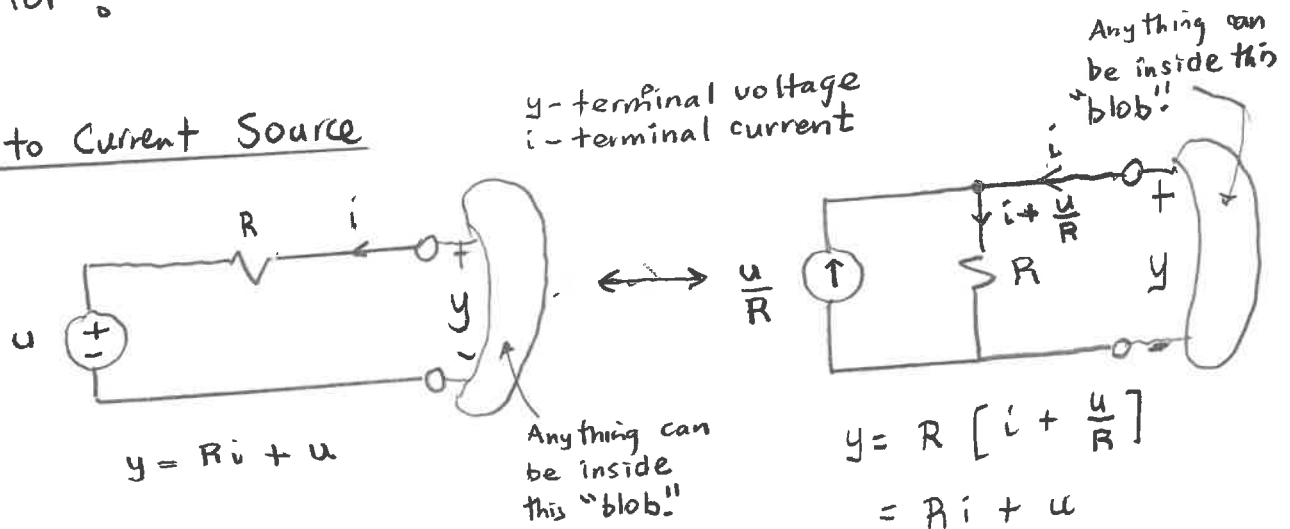 to Current Source
y - terminal voltage
i - terminal current
R
i
u
+
-
+
y
-
Anything can
be inside
this "blob."
y = Ri + u
Anything can
be inside this
"blob."
u/R
↑
i
i + u/R
R
+
y
-
y = R [i + u/R]
= Ri + u